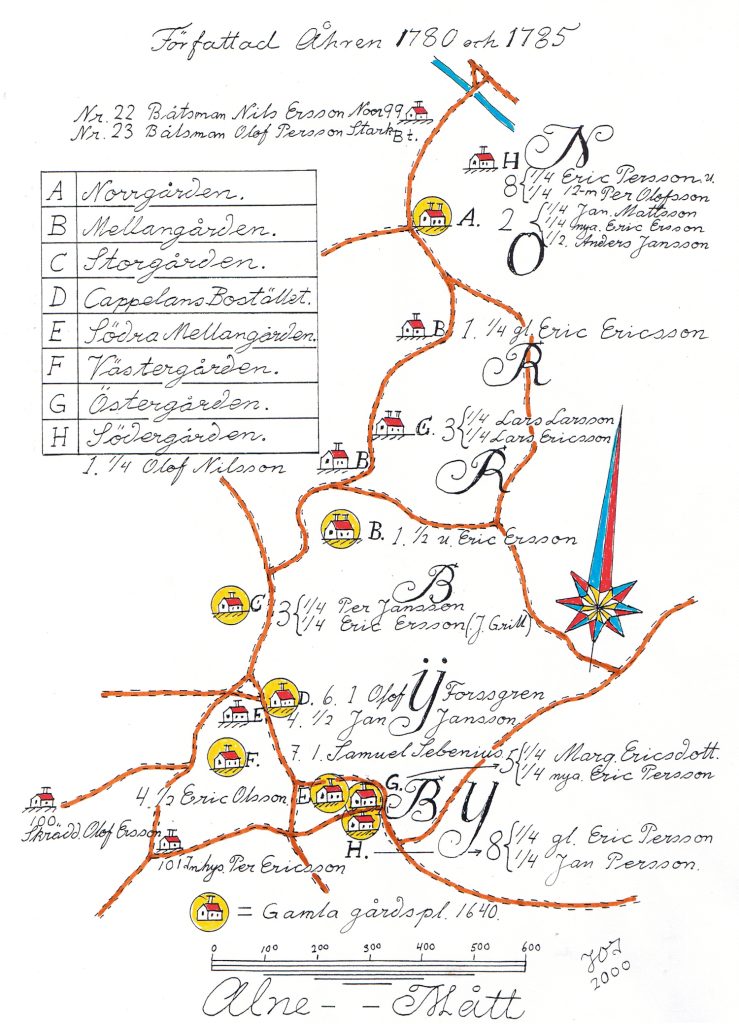 Författad Åhren 1780 och 1785
Nr. 22 Båtsman Nils Ersson Noor 99
Nr. 23 Båtsman Olof Persson Stark
Bt.
H
N
8 { 1/4 Eric Persson u.
1/4 12-m Per Olofsson
A.
2 { 1/4 Jan Mattsson
1/4 nya. Eric Ersson
1/2. Anders Jansson
O
A Norrgården.
B Mellangården.
C Storgården.
D Cappelans Bostället.
E Södra Mellangården.
F Västergården.
G Östergården.
H Södergården.
B 1. 1/4 gl. Eric Ericsson
R
C. 3 { 1/4 Lars Larsson
1/4 Lars Ericsson
B
1. 1/4 Olof Nilsson
R
B. 1. 1/2 u. Eric Ersson
B
C. 3 { 1/4 Per Jansson
1/4 Eric Ersson (J. Grill)
Ÿ
D. 6. 1 Olof Forssgren
E. 4. 1/2 Jan Jansson
F. 7. 1. Samuel Sebenius
G. 5 { 1/4 Marg. Ericsdott.
1/4 nya. Eric Persson
4. 1/2 Eric Olsson E
BY
100
Skrädd. Olof Ersson
H. 8 { 1/4 gl. Eric Persson
1/4 Jan Persson.
101 Inhys. Per Ericsson
= Gamla gårdspl. 1640.
0 100 200 300 400 500 600
JOJ
2000
Alne - - Mått